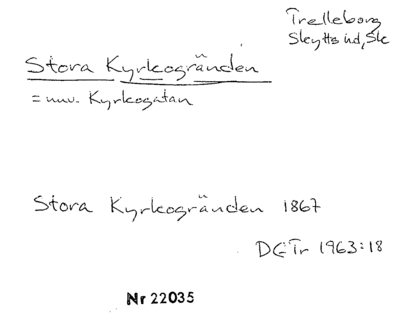 Trelleborg
Skytts hd, Sk
Stora Kyrkogränden
= nuv. Kyrkogatan
Stora Kyrkogränden 1867
DGTr 1963:18
Nr 22035